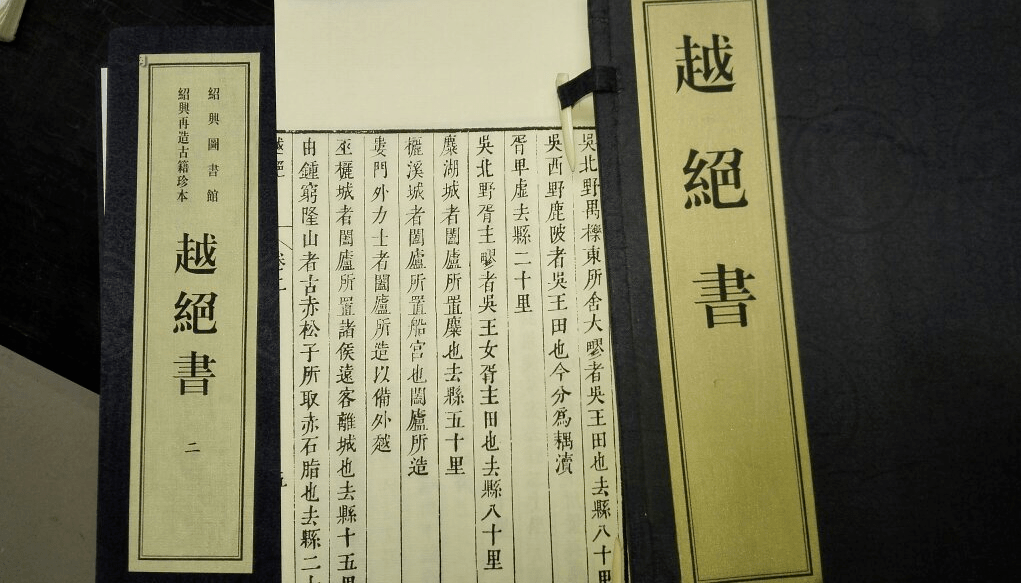 越絕書
吳北野禺櫟東所舍大疁者吳王田也去縣八十里
吳西野鹿陂者吳王田也今分爲耦瀆
胥卑虛去縣二十里
吳北野胥主疁者吳王女胥主田也去縣八十里
麋湖城者闔廬所置麋也去縣五十里
欐溪城者闔廬所置船宮也闔廬所造
婁門外力士者闔廬所造以備外越
巫欐城者闔廬所置諸侯遠客離城也去縣十五里
由鍾窮隆山者古赤松子所取赤石脂也去縣二十
越絕
卷二
紹興圖書館
紹興再造古籍珍本
越絕書
二